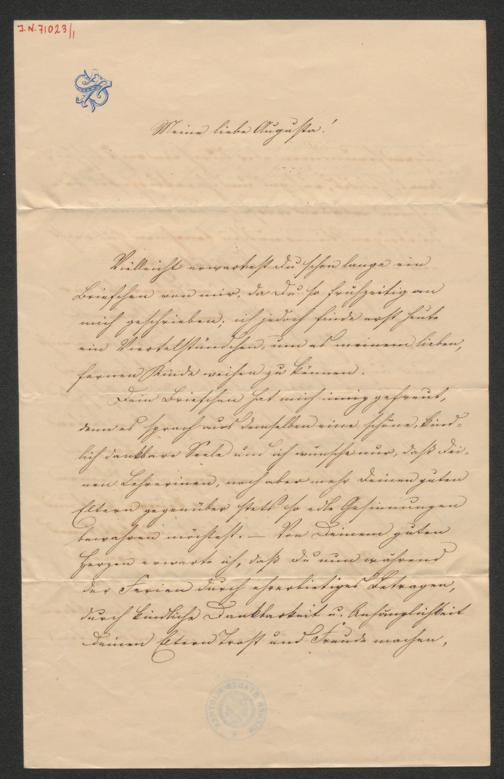 J.N. 71023/1
Meine liebe Augusta!
Vielleicht erwartest Du schon lange ein
Briefchen von mir, da Du so frühzeitig an
mich geschrieben, ich jedoch finde erst heute
ein Viertelstündchen, um es meinem lieben,
fernen Kinde weihen zu können.
Dein Briefchen hat mich innig gefreut,
denn es sprach aus demselben eine schöne, kind-
lich dankbare Seele und ich wünsche nur, daß Dei-
nen Lehrerinen, noch aber mehr Deinen guten
Eltern gegenüber stets so edle Gesinnungen
bewahren möchtest. – Von Deinem guten
Herzen erwarte ich, daß Du nun während
der Ferien durch ehrerbietiges Betragen,
durch kindliche Dankbarkeit u. Anhänglichkeit
Deinen Eltern Trost und Freude machen,